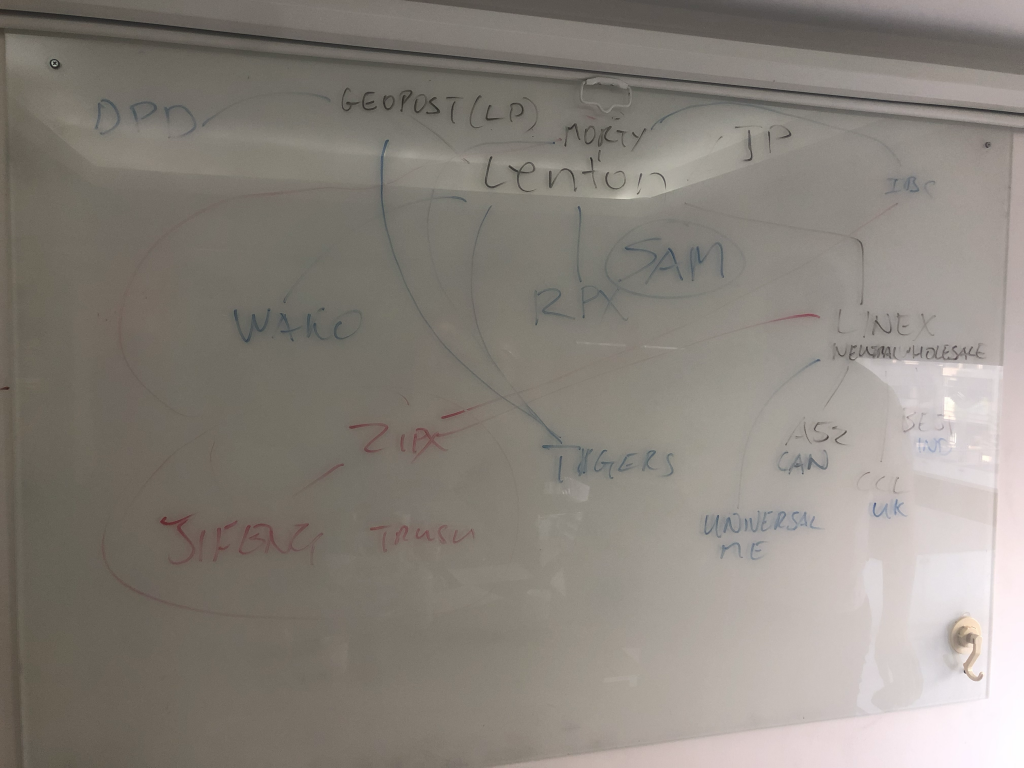 DPD
GEOPOST (LP)
MORTY
JP
Lenton
IBS
SAM
WAKO
RPX
LINEX
ZIPX
TIGERS
CAN
BEST
IND
CCL
UK
JIFENG
UNIVERSAL
ME